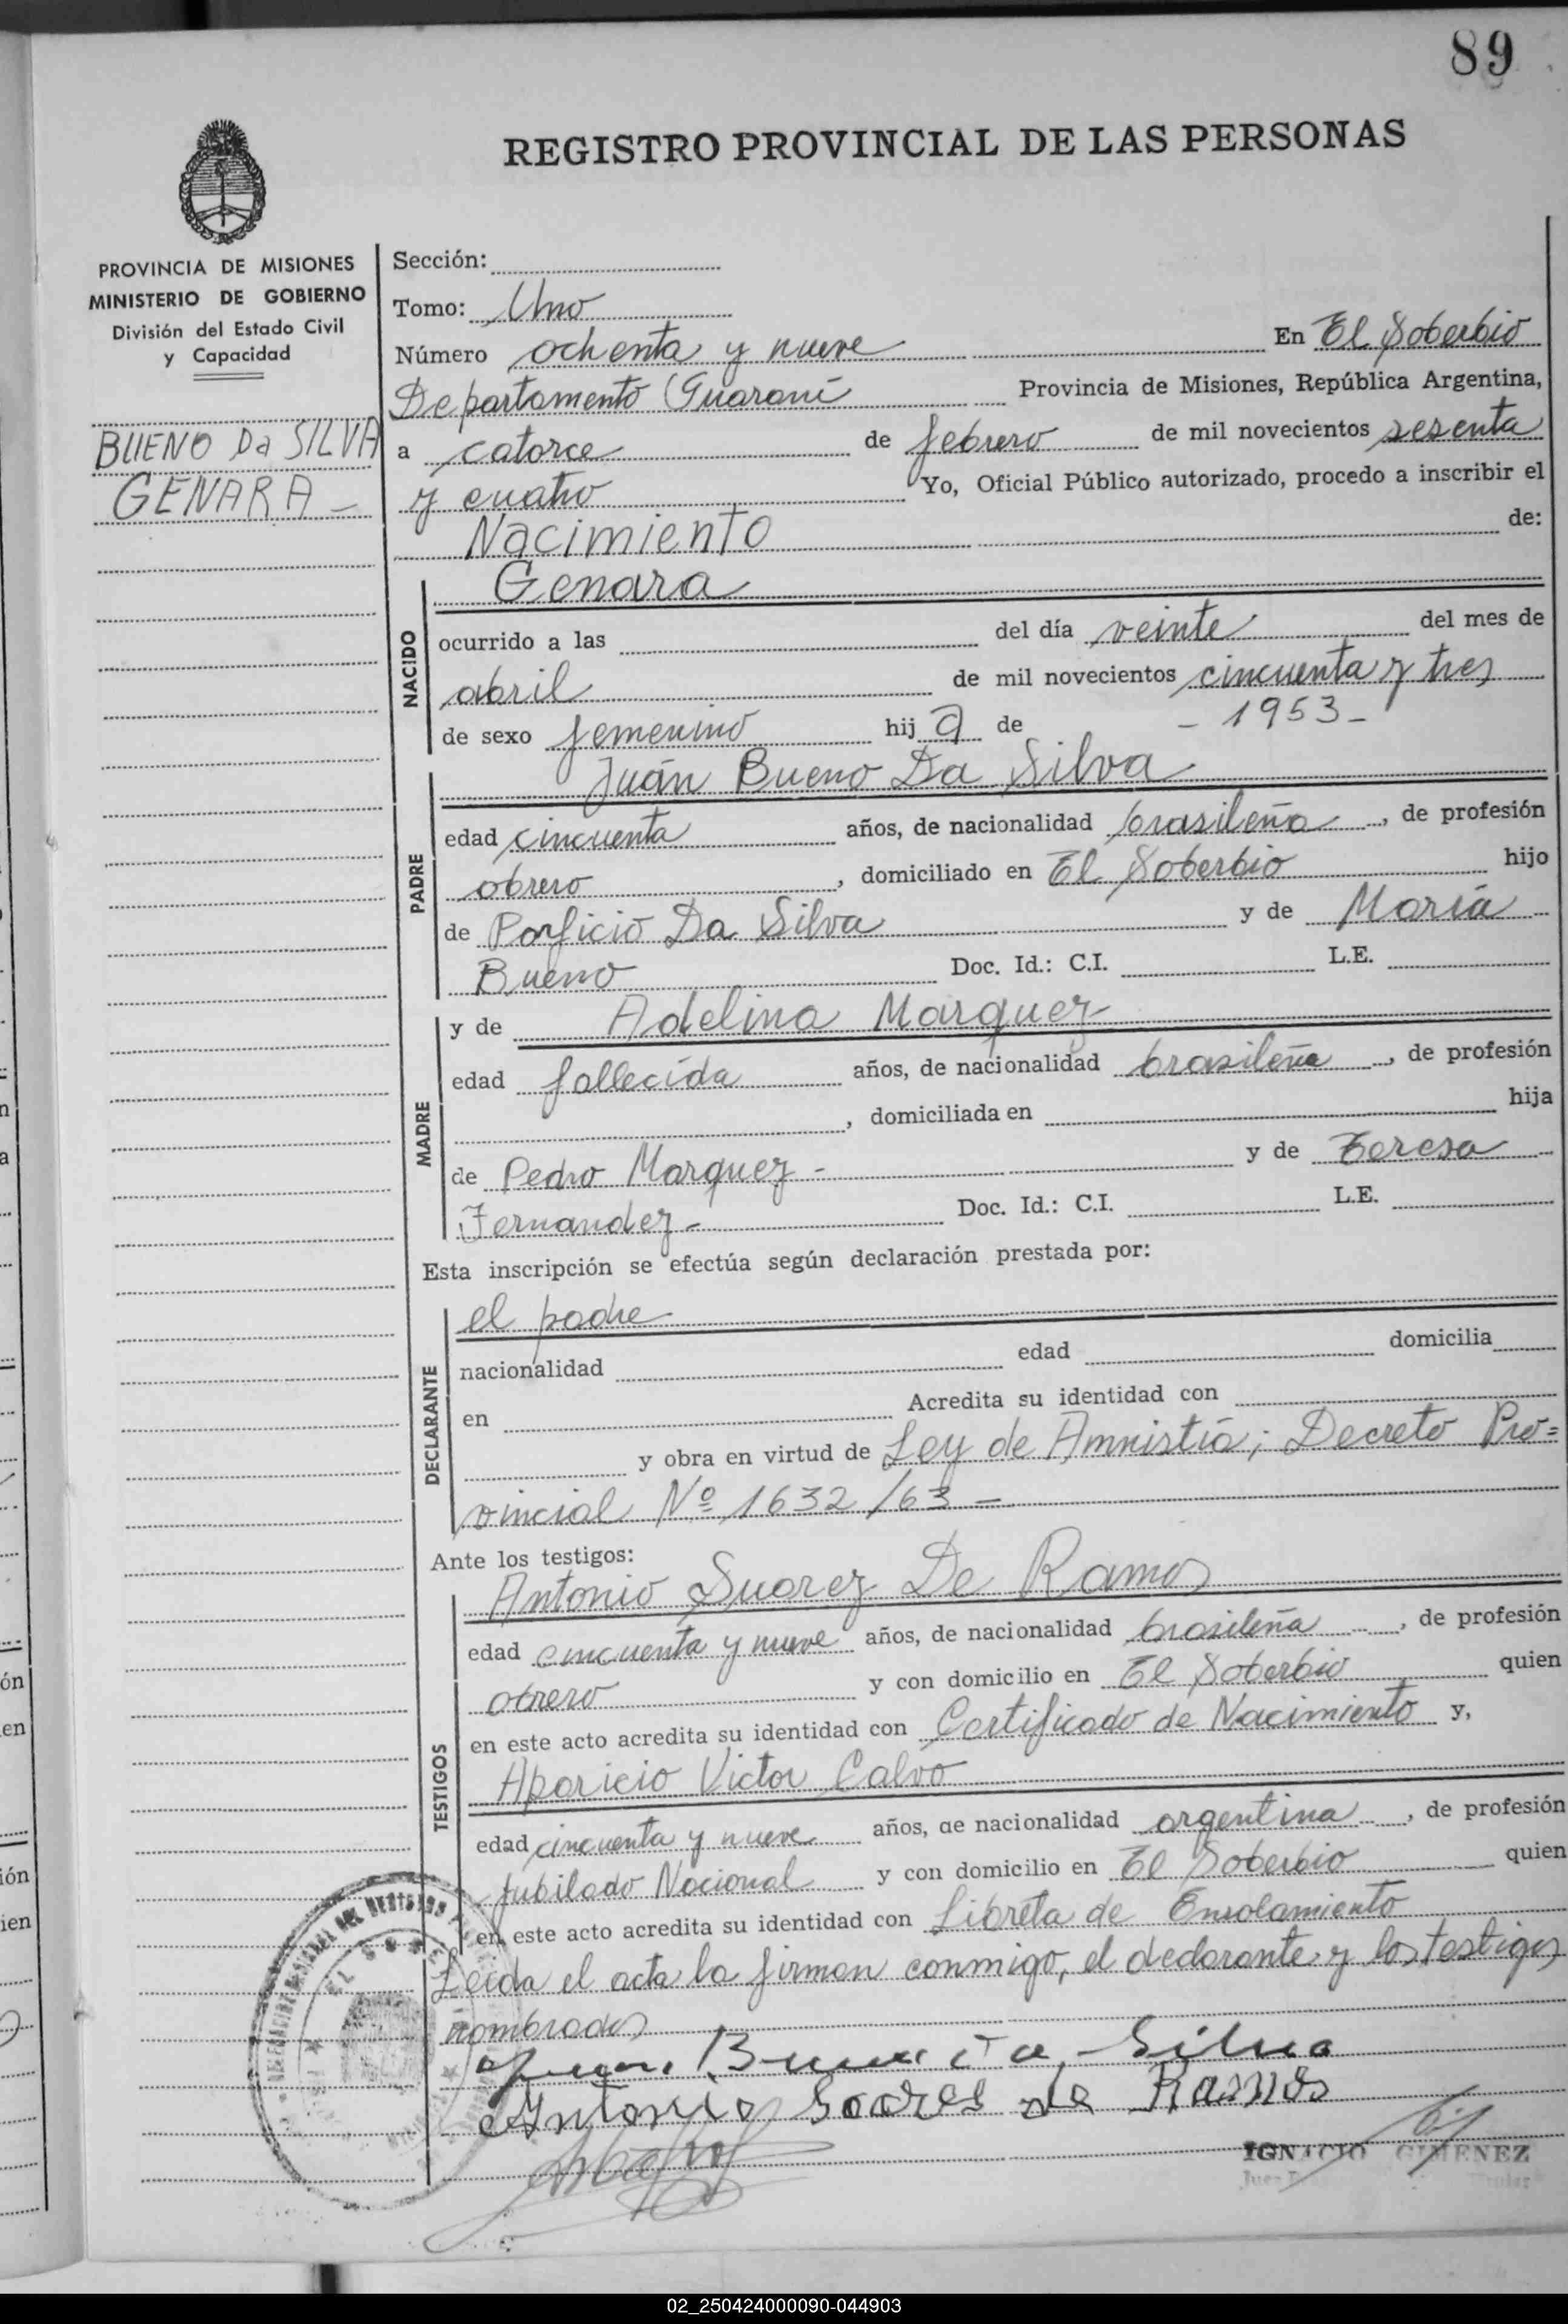 89
REGISTRO PROVINCIAL DE LAS PERSONAS
PROVINCIA DE MISIONES
MINISTERIO DE GOBIERNO
División del Estado Civil
y Capacidad
BUENO Da SILVA
GENARA -
Sección:
Tomo: Uno
Número ochenta y nueve En El Soberbio
Departamento Guaraní Provincia de Misiones, República Argentina,
a catorce de febrero de mil novecientos sesenta
y cuatro Yo, Oficial Público autorizado, procedo a inscribir el
Nacimiento de:
NACIDO
Genara
ocurrido a las del día veinte del mes de
abril de mil novecientos cincuenta y tres
de sexo femenino hija de - 1953 -
PADRE
Juán Bueno Da Silva
edad cincuenta años, de nacionalidad brasileña, de profesión
obrero, domiciliado en El Soberbio hijo
de Porficio Da Silva y de María
Bueno Doc. Id.: C.I. L.E.
MADRE
y de Adelina Marquez
edad fallecida años, de nacionalidad brasileña, de profesión
, domiciliada en hija
de Pedro Marquez - y de Teresa
Fernandez - Doc. Id.: C.I. L.E.
Esta inscripción se efectúa según declaración prestada por:
DECLARANTE
el padre
nacionalidad edad domicilia
en Acredita su identidad con
y obra en virtud de Ley de Amnistía; Decreto Pro=
vincial Nº 1632/63 -
Ante los testigos:
TESTIGOS
Antonio Suarez De Ramos
edad cincuenta y nueve años, de nacionalidad brasileña, de profesión
obrero y con domicilio en El Soberbio quien
en este acto acredita su identidad con Certificado de Nacimiento y,
Aparicio Victor Calvo
edad cincuenta y nueve años, de nacionalidad argentina, de profesión
Jubilado Nacional y con domicilio en El Soberbio quien
en este acto acredita su identidad con Libreta de Enrolamiento
Leída el acta la firman conmigo, el declarante y los testigos
nombrados
Juan Bueno da Silva
Antonio Soares de Ramos
IGNACIO GIMENEZ
02_250424000090-044903